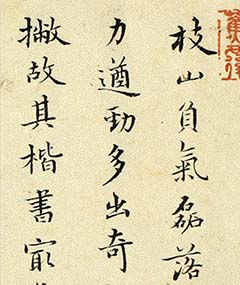 枝山負氣磊落
力遒勁多出奇
撇故其楷書寂